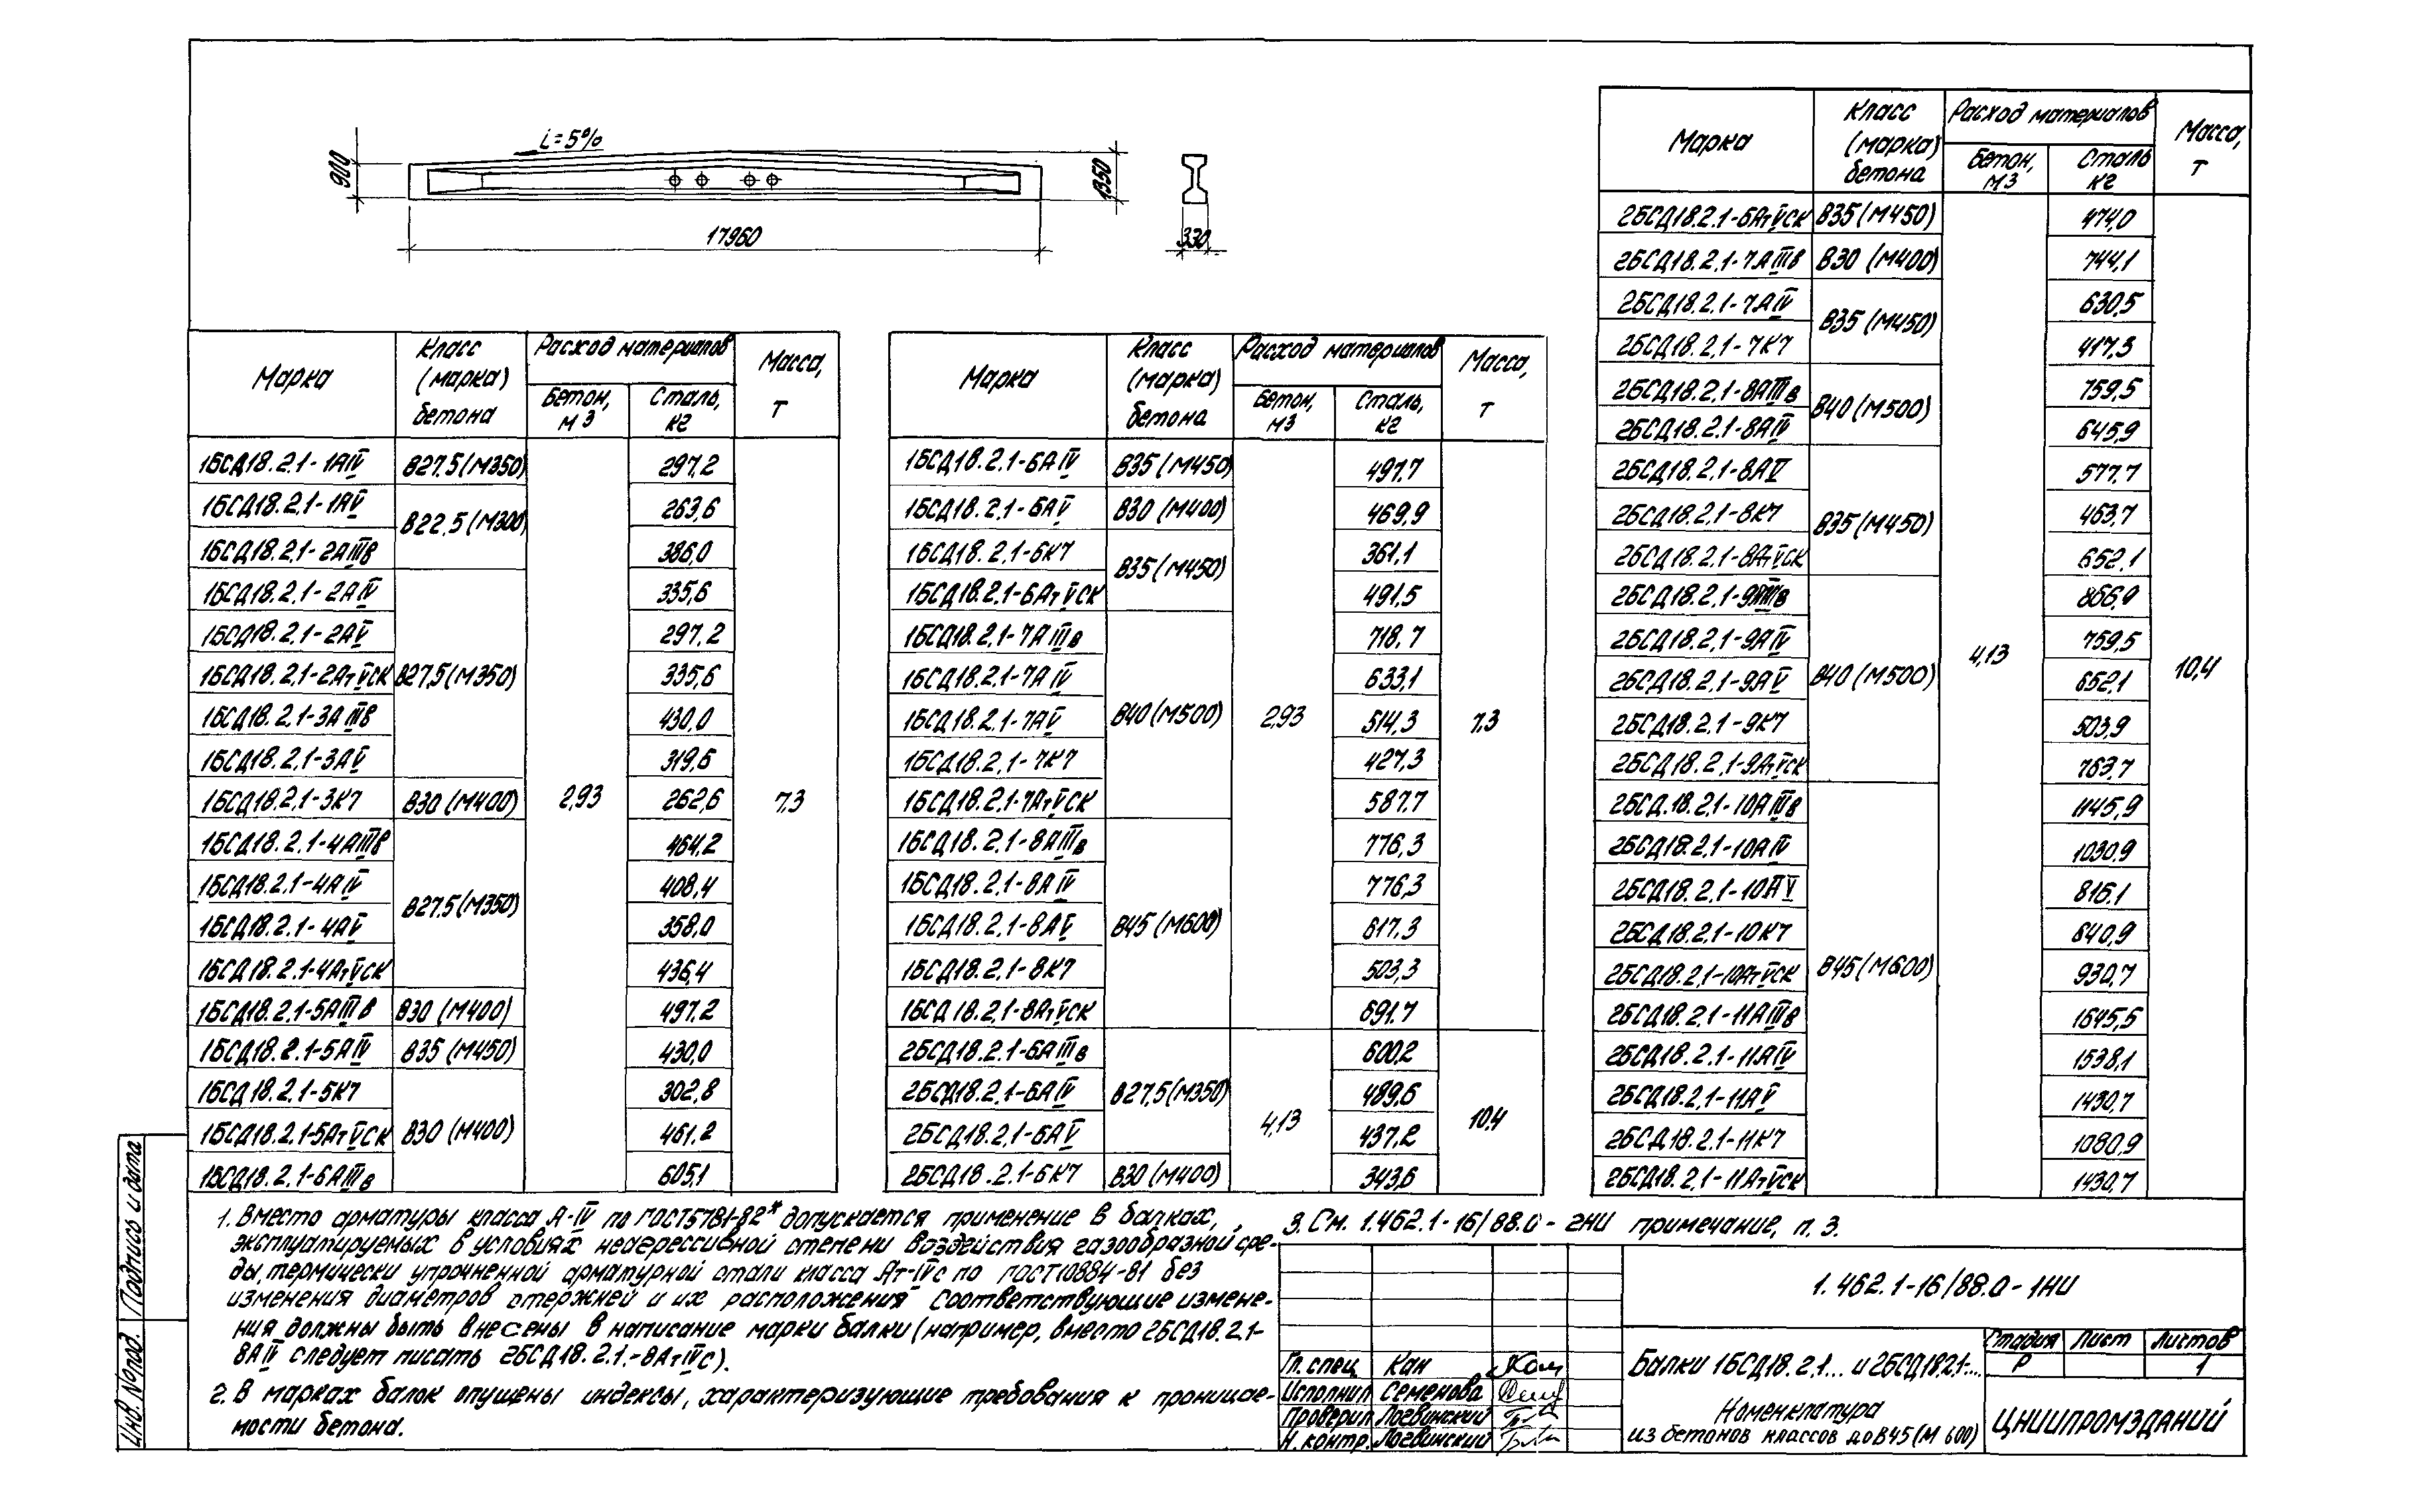 i=5%
900
1350
17960
330
Марка Класс (марка) бетона Расход материалов Масса, т
Бетон, м3 Сталь, кг
1БСД18.2.1-1АIV В27,5(М350) 297.2
1БСД18.2.1-1АV В22,5(М300) 263,6
1БСД18.2.1-2АIIIв 386,0
1БСД18.2.1-2АIV 335,6
1БСД18.2.1-2АV 297.2
1БСД18.2.1-2АтVСК В27,5(М350) 335,6
1БСД18.2.1-3АIIIв 430,0
1БСД18.2.1-3АV 319,6
1БСД18.2.1-3К7 В30 (М400) 2,93 262,6 7,3
1БСД18.2.1-4АIIIв 464,2
1БСД18.2.1-4АIV 408,4
1БСД18.2.1-4АV В27,5(М350) 358,0
1БСД18.2.1-4АтVСК 436,4
1БСД18.2.1-5АIIIв В30 (М400) 497.2
1БСД18.2.1-5АIV В35 (М450) 430,0
1БСД18.2.1-5К7 302,8
1БСД18.2.1-5АтVСК В30 (М400) 461,2
1БСД18.2.1-6АIIIв 605,1
Марка Класс (марка) бетона Расход материалов Масса, т
Бетон, м3 Сталь, кг
1БСД18.2.1-6АIV В35(М450) 497.7
1БСД18.2.1-6АV В30 (М400) 469,9
1БСД18.2.1-6К7 В35(М450) 361,1
1БСД18.2.1-6АтVСК 491,5
1БСД18.2.1-7АIIIв 718,7
1БСД18.2.1-7АIV 633,1
1БСД18.2.1-7АV В40(М500) 2,93 514,3 7,3
1БСД18.2.1-7К7 427,3
1БСД18.2.1-7АтVСК 587.7
1БСД18.2.1-8АIIIв 776,3
1БСД18.2.1-8АIV 776,3
1БСД18.2.1-8АV В45 (М600) 617.3
1БСД18.2.1-8К7 503,3
1БСД18.2.1-8АтVСК 691.7
2БСД18.2.1-6АIIIв 600,2
2БСД18.2.1-6АIV В27,5(М350) 489,6
2БСД18.2.1-6АV 4,13 437,2 10,4
2БСД18.2.1-6К7 В30 (М400) 343,6
Марка Класс (марка) бетона Расход материалов Масса, т
Бетон, м3 Сталь кг
2БСД18.2.1-6АтVСК В35(М450) 474,0
2БСД18.2.1-7АIIIв В30 (М400) 744,1
2БСД18.2.1-7АIV В35 (М450) 630,5
2БСД18.2.1-7К7 417,3
2БСД18.2.1-8АIIIв В40(М500) 759,5
2БСД18.2.1-8АIV 645,9
2БСД18.2.1-8АV 577.7
2БСД18.2.1-8К7 В35(М450) 463,7
2БСД18.2.1-8АтVСК 652,1
2БСД18.2.1-9АIIIв 866,9
2БСД18.2.1-9АIV 4,13 759,5
2БСД18.2.1-9АV В40 (М500) 652,1 10,4
2БСД18.2.1-9К7 503,9
2БСД18.2.1-9АтVСК 763,7
2БСД.18.2.1-10АIIIв 1145,9
2БСД18.2.1-10АIV 1030,9
2БСД18.2.1-10АV 816,1
2БСД18.2.1-10К7 640,9
2БСД18.2.1-10АтVСК В45(М600) 930,7
2БСД18.2.1-11АIIIв 1645,5
2БСД18.2.1-11АIV 1538,1
2БСД18.2.1-11АV 1430,7
2БСД18.2.1-11К7 1080,9
2БСД18.2.1-11АтVСК 1430,7
1. Вместо арматуры класса А-IV по ГОСТ5781-82* допускается применение в балках,
эксплуатируемых в условиях неагрессивной степени воздействия газообразной сре-
ды, термически упрочненной арматурной стали класса Ат-IVс по ГОСТ10884-81 без
изменения диаметров стержней и их расположения Соответствующие измене-
ния должны быть внесены в написание марки балки (например, вместо 2БСД18.2.1-
8АIV следует писать 2БСД18.2.1.-8АтIVс).
2. В марках балок опущены индексы, характеризующие требования к проницае-
мости бетона.
3. См. 1.462.1-16/88.0-2НИ примечание, п. 3.
1.462.1-16/88.0-1НИ
Гл.спец. Кан
Исполнил Семенова
Проверил Логвинский
Н. контр. Логвинский
Балки 1БСД18.2.1... и 2БСД18.2.1-...
Номенклатура
из бетонов классов до В45 (М 600)
Стадия Лист Листов
Р 1
ЦНИИПРОМЗДАНИЙ
Инв. № подл. Подпись и дата